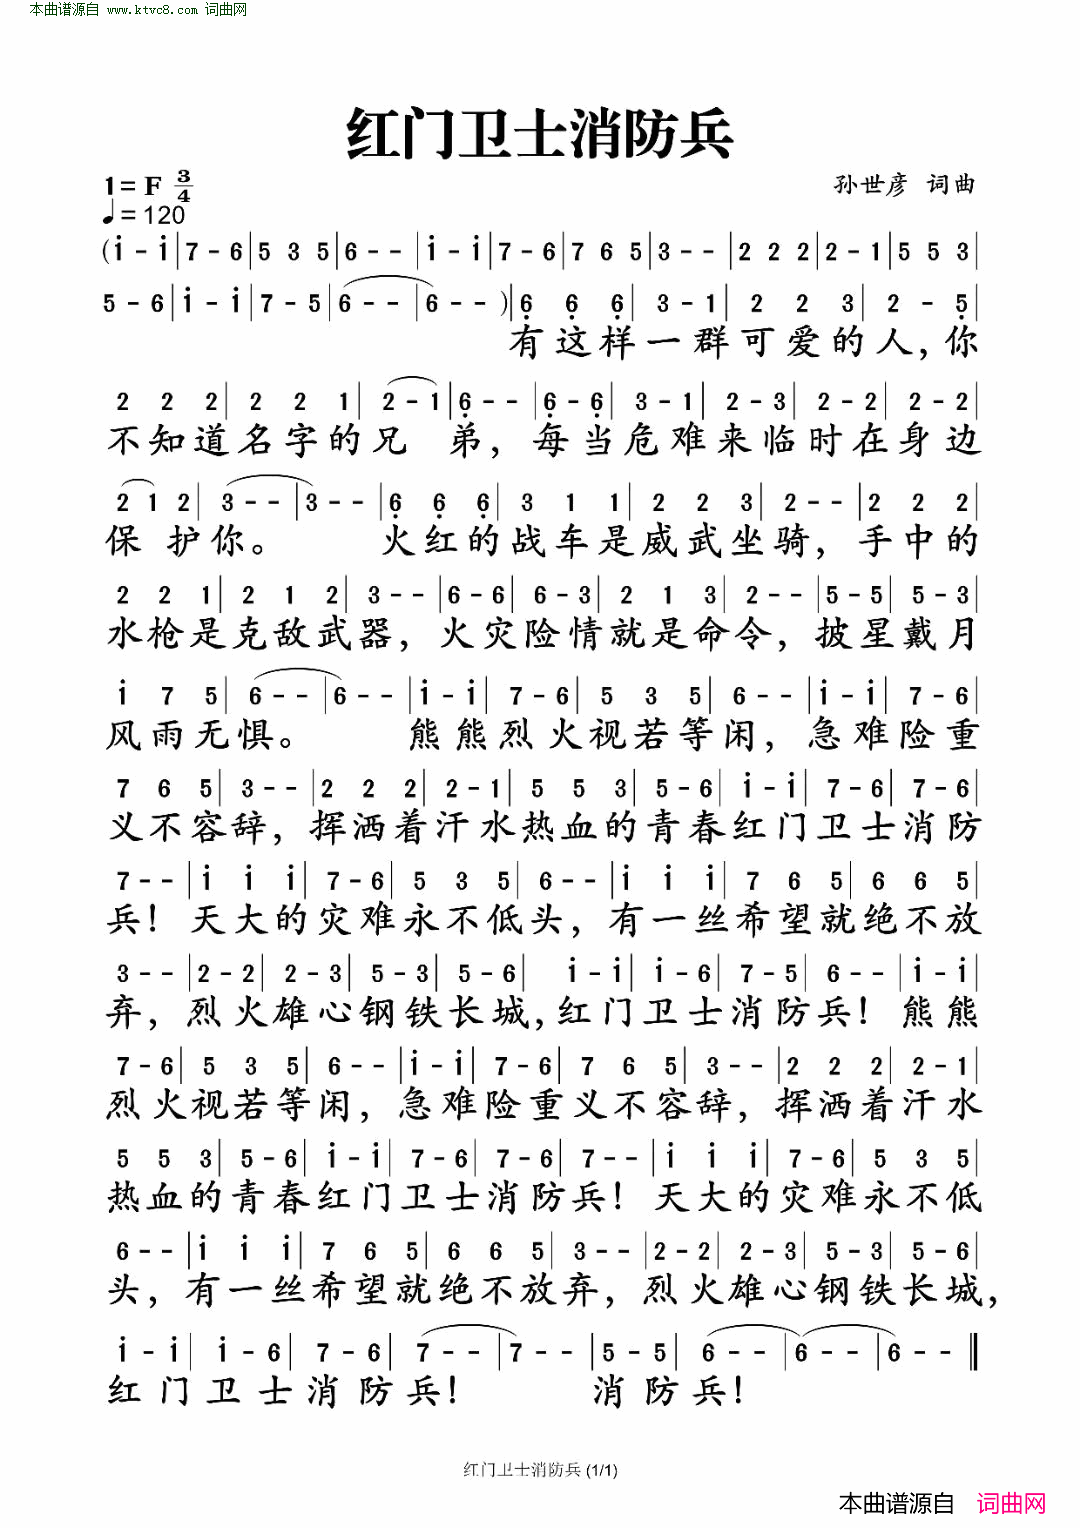 本曲谱源自 www.ktvc8.com 词曲网
红门卫士消防兵
1=F 3/4
孙世彦 词曲
♩=120
(i - i|7 - 6|5 3 5|6 - -|i - i|7 - 6|7 6 5|3 - -|2 2 2|2 - 1|5 5 3|
5 - 6|i - i|7 - 5|6 - -|6 - -)|6̣ 6̣ 6̣|3 - 1|2 2 3|2 - 5̣|
有这样一群可爱的人,你
2 2 2|2 2 1|2 - 1|6̣ - -|6̣ - 6̣|3 - 1|2 - 3|2 - 2|2 - 2|
不知道名字的兄 弟,每当危难来临时在身边
2 1 2|3 - -|3 - -|6̣ 6̣ 6̣|3 1 1|2 2 3|2 - -|2 2 2|
保 护你。 火红的战车是威武坐骑,手中的
2 2 1|2 1 2|3 - -|6 - 6|6 - 3|2 1 3|2 - -|5 - 5|5 - 3|
水枪是克敌武器,火灾险情就是命令,披星戴月
i 7 5|6 - -|6 - -|i - i|7 - 6|5 3 5|6 - -|i - i|7 - 6|
风雨无惧。 熊熊烈火视若等闲,急难险重
7 6 5|3 - -|2 2 2|2 - 1|5 5 3|5 - 6|i - i|7 - 6|7 - 6|
义不容辞,挥洒着汗水热血的青春红门卫士消防
7 - -|i i i|7 - 6|5 3 5|6 - -|i i i|7 6 5|6 6 5|
兵!天大的灾难永不低头,有一丝希望就绝不放
3 - -|2 - 2|2 - 3|5 - 3|5 - 6|i - i|i - 6|7 - 5|6 - -|i - i|
弃,烈火雄心钢铁长城,红门卫士消防兵!熊熊
7 - 6|5 3 5|6 - -|i - i|7 - 6|7 6 5|3 - -|2 2 2|2 - 1|
烈火视若等闲,急难险重义不容辞,挥洒着汗水
5 5 3|5 - 6|i - i|7 - 6|7 - 6|7 - -|i i i|7 - 6|5 3 5|
热血的青春红门卫士消防兵!天大的灾难永不低
6 - -|i i i|7 6 5|6 6 5|3 - -|2 - 2|2 - 3|5 - 3|5 - 6|
头,有一丝希望就绝不放弃,烈火雄心钢铁长城,
i - i|i - 6|7 - 6|7 - -|7 - -|5 - 5|6 - -|6 - -|6 - -‖
红门卫士消防兵! 消防兵!
红门卫士消防兵 (1/1)
本曲谱源自 词曲网